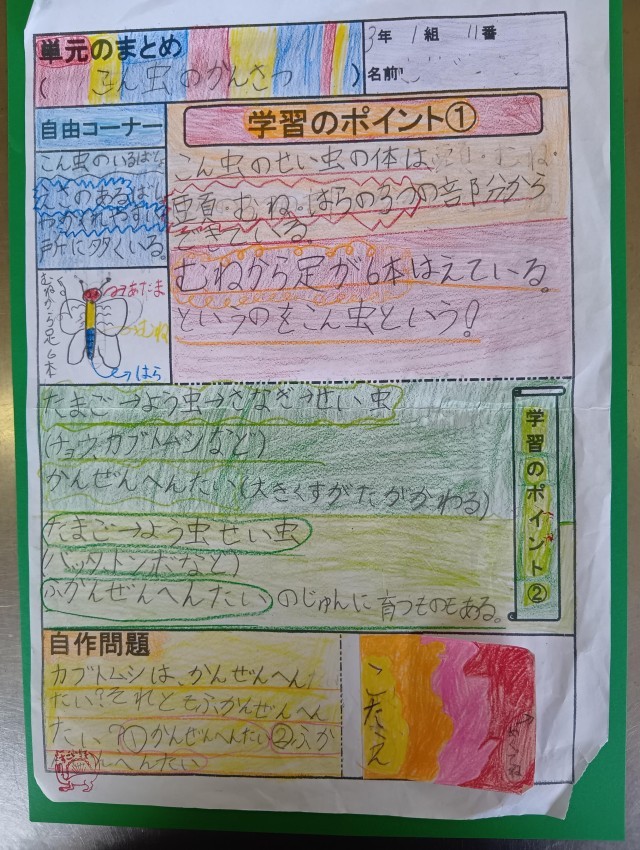 単元のまとめ
(こん虫のかんさつ)
3年 1組 11番
名前
自由コーナー
こん虫のいるばしょ
えさのあるばしょ
やかくれやすい場
所に多くいる。
学習のポイント①
こん虫のせい虫の体は
頭・むね・はらの3つの部分から
できている。
むねから足が6本はえている。
というのをこん虫という!
あたま
むね
はら
むねから足6本
たまご→よう虫→さなぎ→せい虫
(チョウ、カブトムシなど)
かんぜんへんたい(大きくすがたがかわる)
たまご→よう虫せい虫
(バッタ、トンボなど)
ふかんぜんへんたいのじゅんに育つものもある。
学習のポイント②
自作問題
カブトムシは、かんぜんへん
たい?それともふかんぜんへん
たい?①かんぜんへんたい②ふか
んへんたい
こたえ